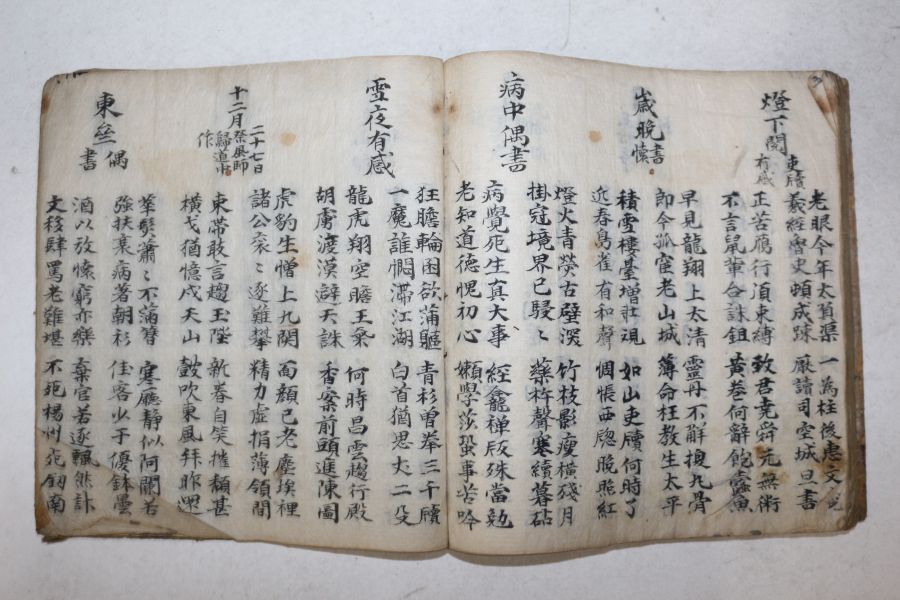 燈下閱吏牘有感
老眼今年太負渠 一為柱後惠文
羲經魯史頓成疎 嚴讀司空城旦書
正苦鴈行須束縛 致君堯舜元無術
不言鼠輩合誅鉏 黃卷何辭飽蠹魚
歲晚書懷
早見龍翔上太清 靈丹不解換凡骨
即今孤宦老山城 薄命枉教生太平
積雪樓臺增壯觀 如山吏牘何時了
近春鳥雀有和聲 惆悵西窓晚照紅
病中偶書
燈火青熒古壁深 竹枝影瘦橫殘月
掛冠境界已駸〻 藥杵聲寒續暮砧
病覺死生真大事 經龕禅版殊當勉
老知道德愧初心 嬾學莎蛩事苦吟
雪夜有感
狂膽輪囷欲蒲軀 青衫曾奉三千牘
一麾誰憫滯江湖 白首猶思丈二殳
龍虎翔空瞻王氣 何時昌雲趨行殿
胡虜渡漠辟天誅 香案前頭進陳圖
十二月二十七日祭風師歸道中作
虎豹生憎上九関 面顏已老塵埃裡
諸公袞〻逐難攀 精力虛捐薄領間
東帶敢言趨玉陛 新春自笑摧頹甚
橫戈猶憶戍天山 鼓吹東風拜昨還
東齋偶書
華髮蕭〻不滿簪 寒廳靜似阿蘭若
強扶衰病著朝衫 佳客少于優鉢曇
酒以放懷窮亦樂 棄官若遂飄然計
文移肆罵老難堪 不死楊州死劒南